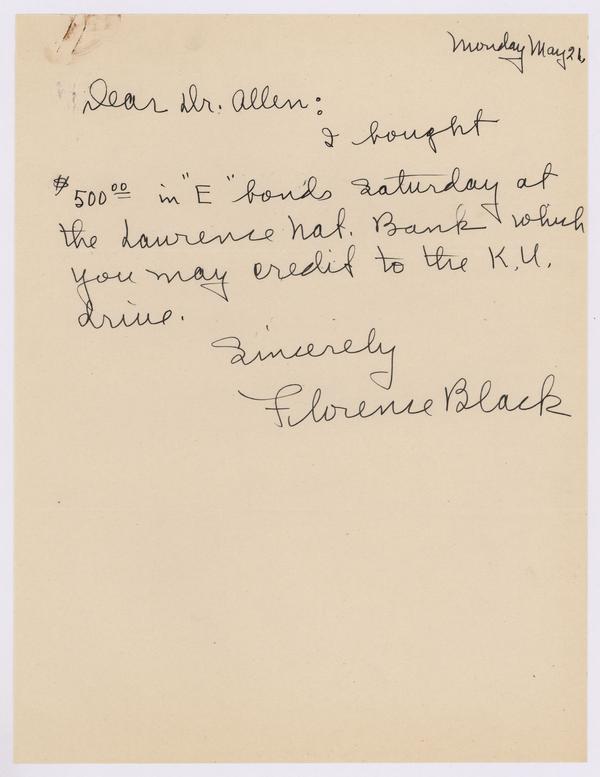 Monday May 21
Dear Dr. Allen:
I bought
$500.00 in "E" bonds Saturday at
the Lawrence Nat. Bank which
you may credit to the K.U.
drive.
Sincerely
Florence Black